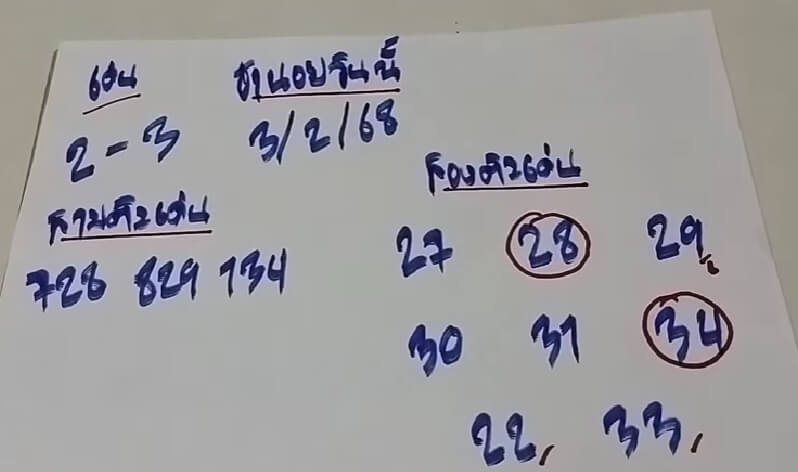 เด่น ฮานอยวันนี้
2-3 3/2/68
สามตัวเด่น
728 829 134
สองตัวเด่น
27 28 29
30 31 34
22, 33,